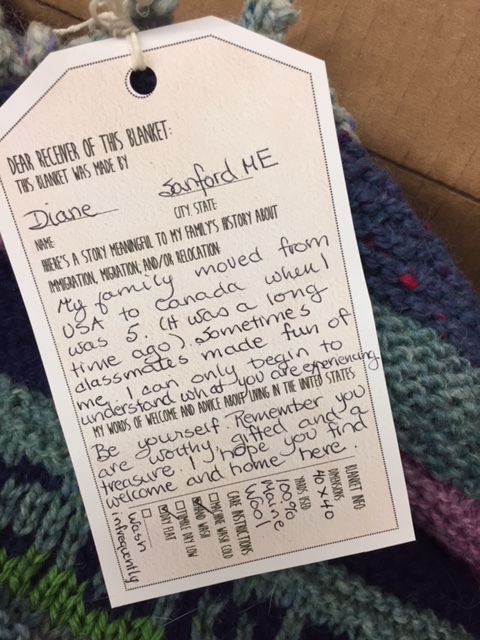 DEAR RECEIVER OF THIS BLANKET:
THIS BLANKET WAS MADE BY
Diane Sanford ME
NAME CITY, STATE
HERE'S A STORY MEANINGFUL TO MY FAMILY'S HISTORY ABOUT
IMMIGRATION, MIGRATION, AND/OR RELOCATION:
My family moved from
USA to Canada when I
was 5. (It was a long
time ago). Sometimes
classmates made fun of
me. I can only begin to
understand what you are experiencing
MY WORDS OF WELCOME AND ADVICE ABOUT LIVING IN THE UNITED STATES
Be yourself. Remember you
are worthy, gifted and a
treasure. I hope you find
welcome and home here.
BLANKET INFO
DIMENSIONS
40 x 40
YARNS USED
100%
Maine
Wool
CARE INSTRUCTIONS
MACHINE WASH COLD
HAND WASH
TUMBLE DRY LOW
DRY FLAT
Wash
infrequently